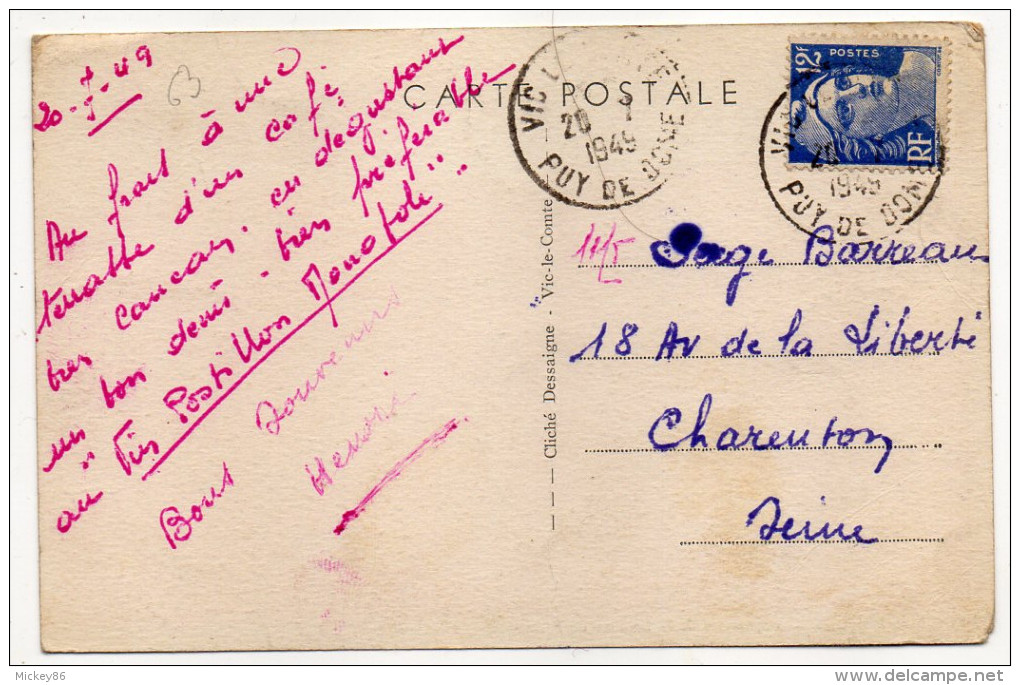 20-7-49
Au frais à une
terrasse d'un café
très cancan. en degustant
un bon demi - très préférable
au " Vin Postillon Monopole"
Bons Souvenirs
Henri
63
CARTE POSTALE
VIC LE COMTE
20 7
1949
PUY DE DOME
12F
POSTES
RF
VIC
20
1949
PUY DE DOME
— — — Cliché Dessaigne - Vic-le-Comte
Serge Barreau
18 Av de la Liberté
Charenton
Seine
Mickey86
delcampe.net